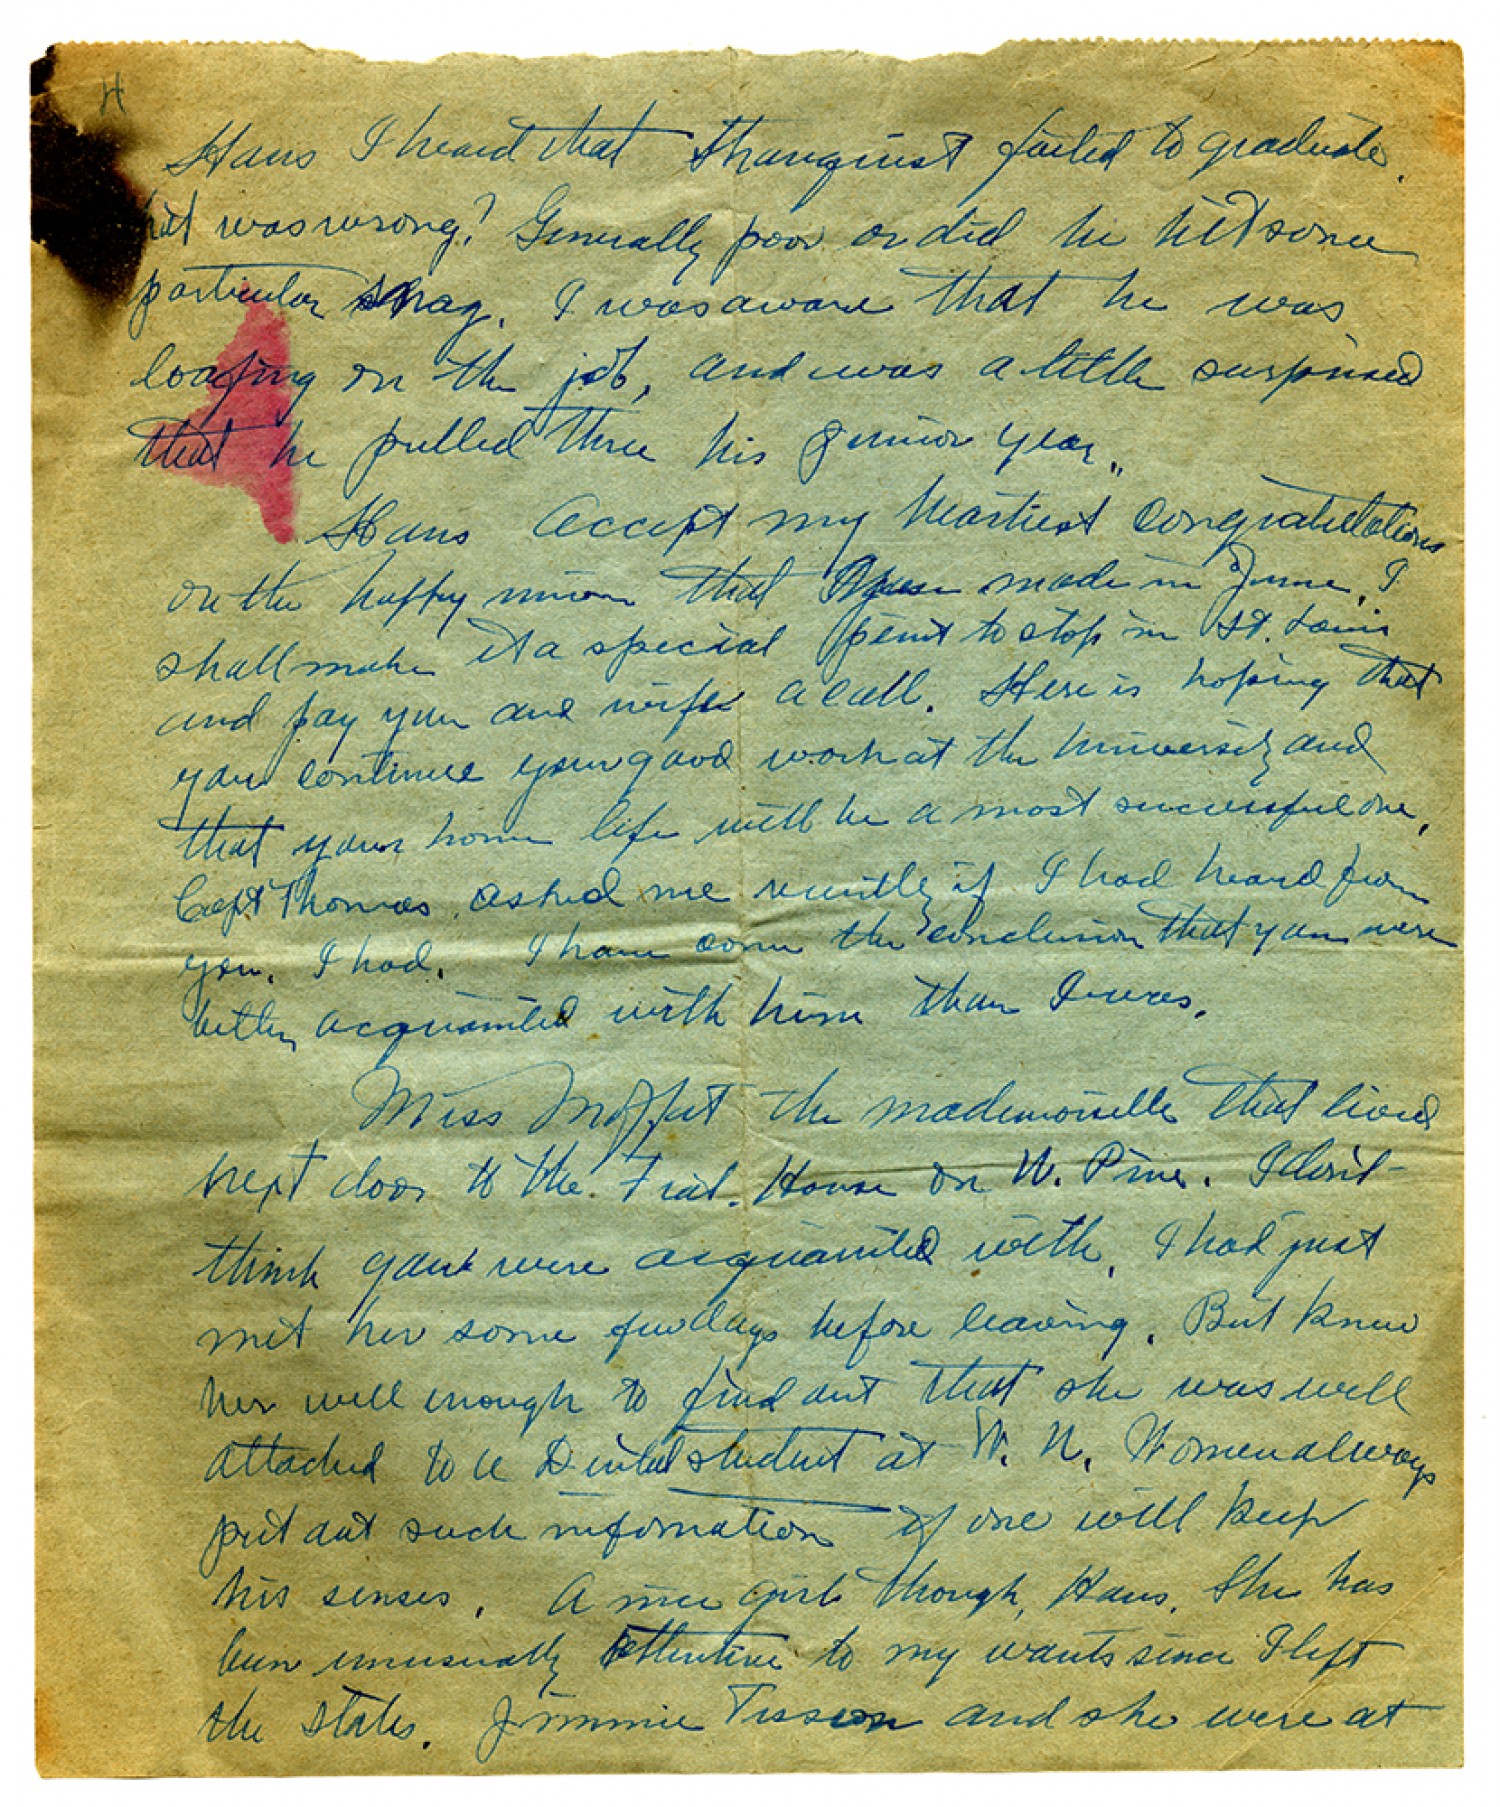 4
Hans I heard that failed to graduate.
was wrong? Generally poor or did he hit some
particular snag. I was aware that he was
loafing on the job, and was a little surprised
that he pulled three his Junior year.
Hans accept my heartiest congratulations
on the happy union that made in June. I
shall make it a special point to stop in St. Louis
and pay you and wife a call. Here is hoping that
you continue your good work at the University and
that your home life will be a most successful one.
Capt Thomas asked me recently if I had heard from
you. I had. I have come the conclusion that you were
better acquainted with him than I was.
Miss Moffet the mademoiselle that lived
next door to the Frat. House on W. Pine. I don't
think you were acquainted with. I had just
met her some few days before leaving. But knew
her well enough to find out that she was well
attached to a Dental student at W. U. Women always
put out such information if one will keep
his senses. A nice girl though, Hans. She has
been unusually attentive to my wants since I left
the states. Jimmie and she were at